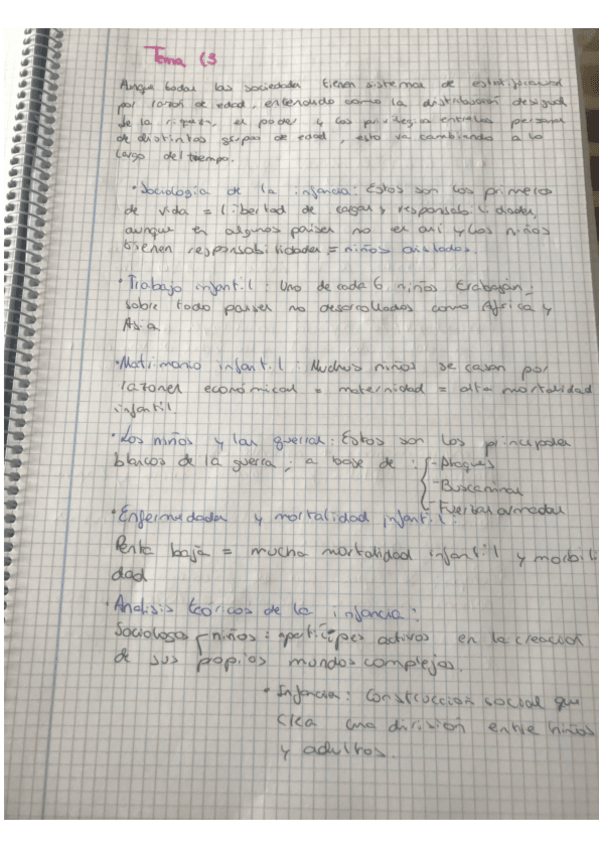 Tema 13
Aunque todas las sociedades tienen sistemas de estratificación
por razón de edad, entendido como la distribución desigual
de la riqueza, el poder y los privilegios entre las personas
de distintos grupos de edad, esto va cambiando a lo
largo del tiempo.
· Sociologia de la infancia: Estos son los primeros
de vida = libertad de cargas y responsabilidades,
aunque en algunos paises no es asi y los niños
tienen responsabilidades = niños aislados.
· Trabajo infantil: Uno de cada 6 niños trabajan;
sobre todo paises no desarrollados como Africa y
Asia
· Matimonio infantil: Muchos niños se casan por
razones económicas = maternidad = alta mortalidad
infantil
· Los niños y las guerras: Estos son los principales
blancos de la guerra; a base de: - Ataques
- Buscaminas
- Fuerzas armadas
· Enfermedades y mortalidad infantil:
Renta baja = mucha mortalidad infantil y morbili
dad
· Analisis teóricos de la infancia:
Sociologos niños: participes activos en la creación
de sus propios mundos complejos.
· Infancia: Construccion social que
crea una division entre niños
y adultos.